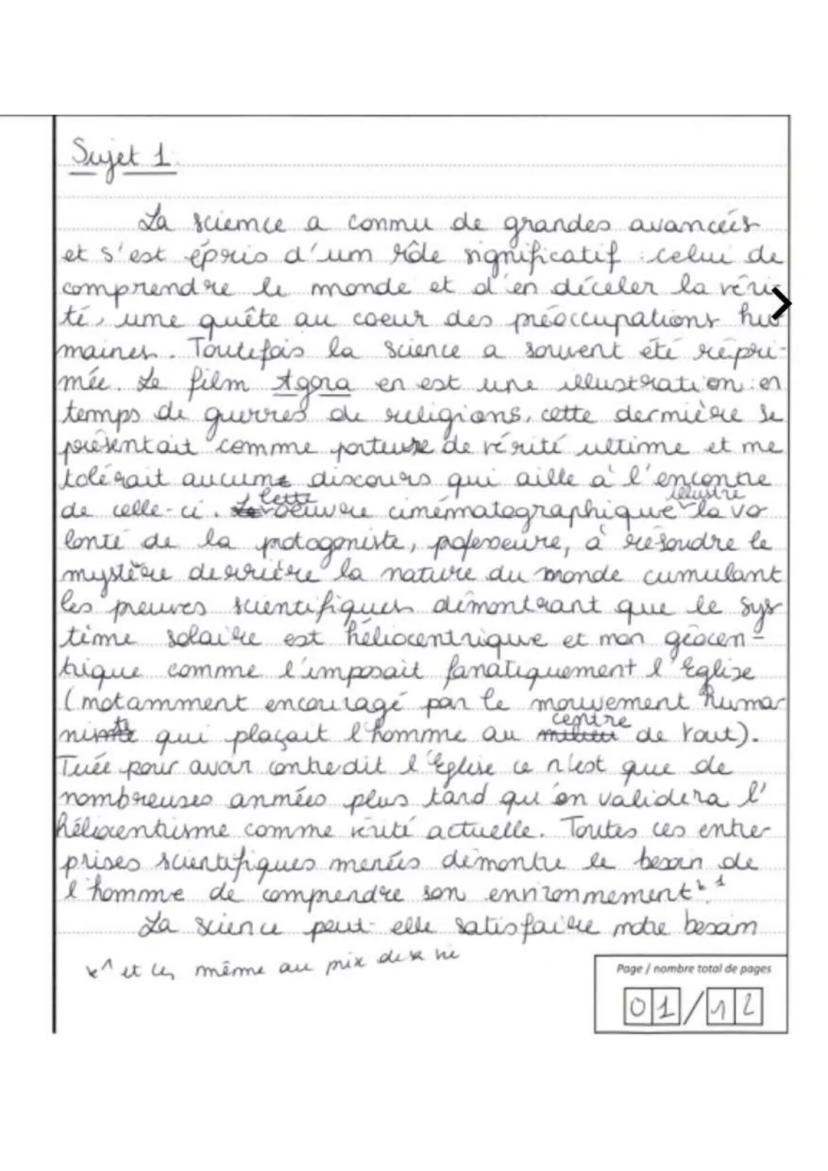 Sujet 1
La science a connu de grandes avancées
et s'est épris d'un rôle significatif : celui de
comprendre le monde et d'en déceler la véri-
té, une quête au coeur des préoccupations hu
maines. Toutefois la science a souvent été répri-
mée. Le film Agora en est une illustration : en
temps de guerres de religions, cette dernière se
présentait comme porteuse de vérité ultime et ne
tolérait aucun discours qui aille à l'encontre
de celle-ci. Cette oeuvre cinématographique illustre la vo
lonté de la protagoniste, professeure, à résoudre le
mystère derrière la nature du monde cumulant
les preuves scientifiques démontrant que le sys
tème solaire est héliocentrique et non géocen-
trique comme l'imposait fanatiquement l'Eglise
(notamment encouragé par le mouvement huma
niste qui plaçait l'homme au centre de tout).
Tuée pour avoir contredit l'Eglise ce n'est que de
nombreuses années plus tard qu'on validera l'
héliocentrisme comme vérité actuelle. Toutes ces entre
prises scientifiques menées démontre le besoin de
l'homme de comprendre son environnement*1.
La science peut-elle satisfaire notre besoin
*1 et ce, même au prix de sa vie
Page / nombre total de pages
01/12